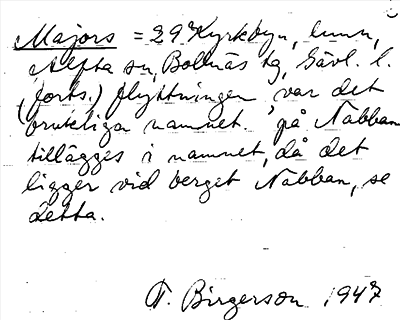 Majors = 29 Kyrkbyn,
Alfta sn, Bollnäs tg, Gävl. l.
(forts.) flyttningen var det
brukliga namnet. på Nabban
tillägges i namnet, då det
ligger vid berget Nabban, se
detta.
T. Birgerson 1947